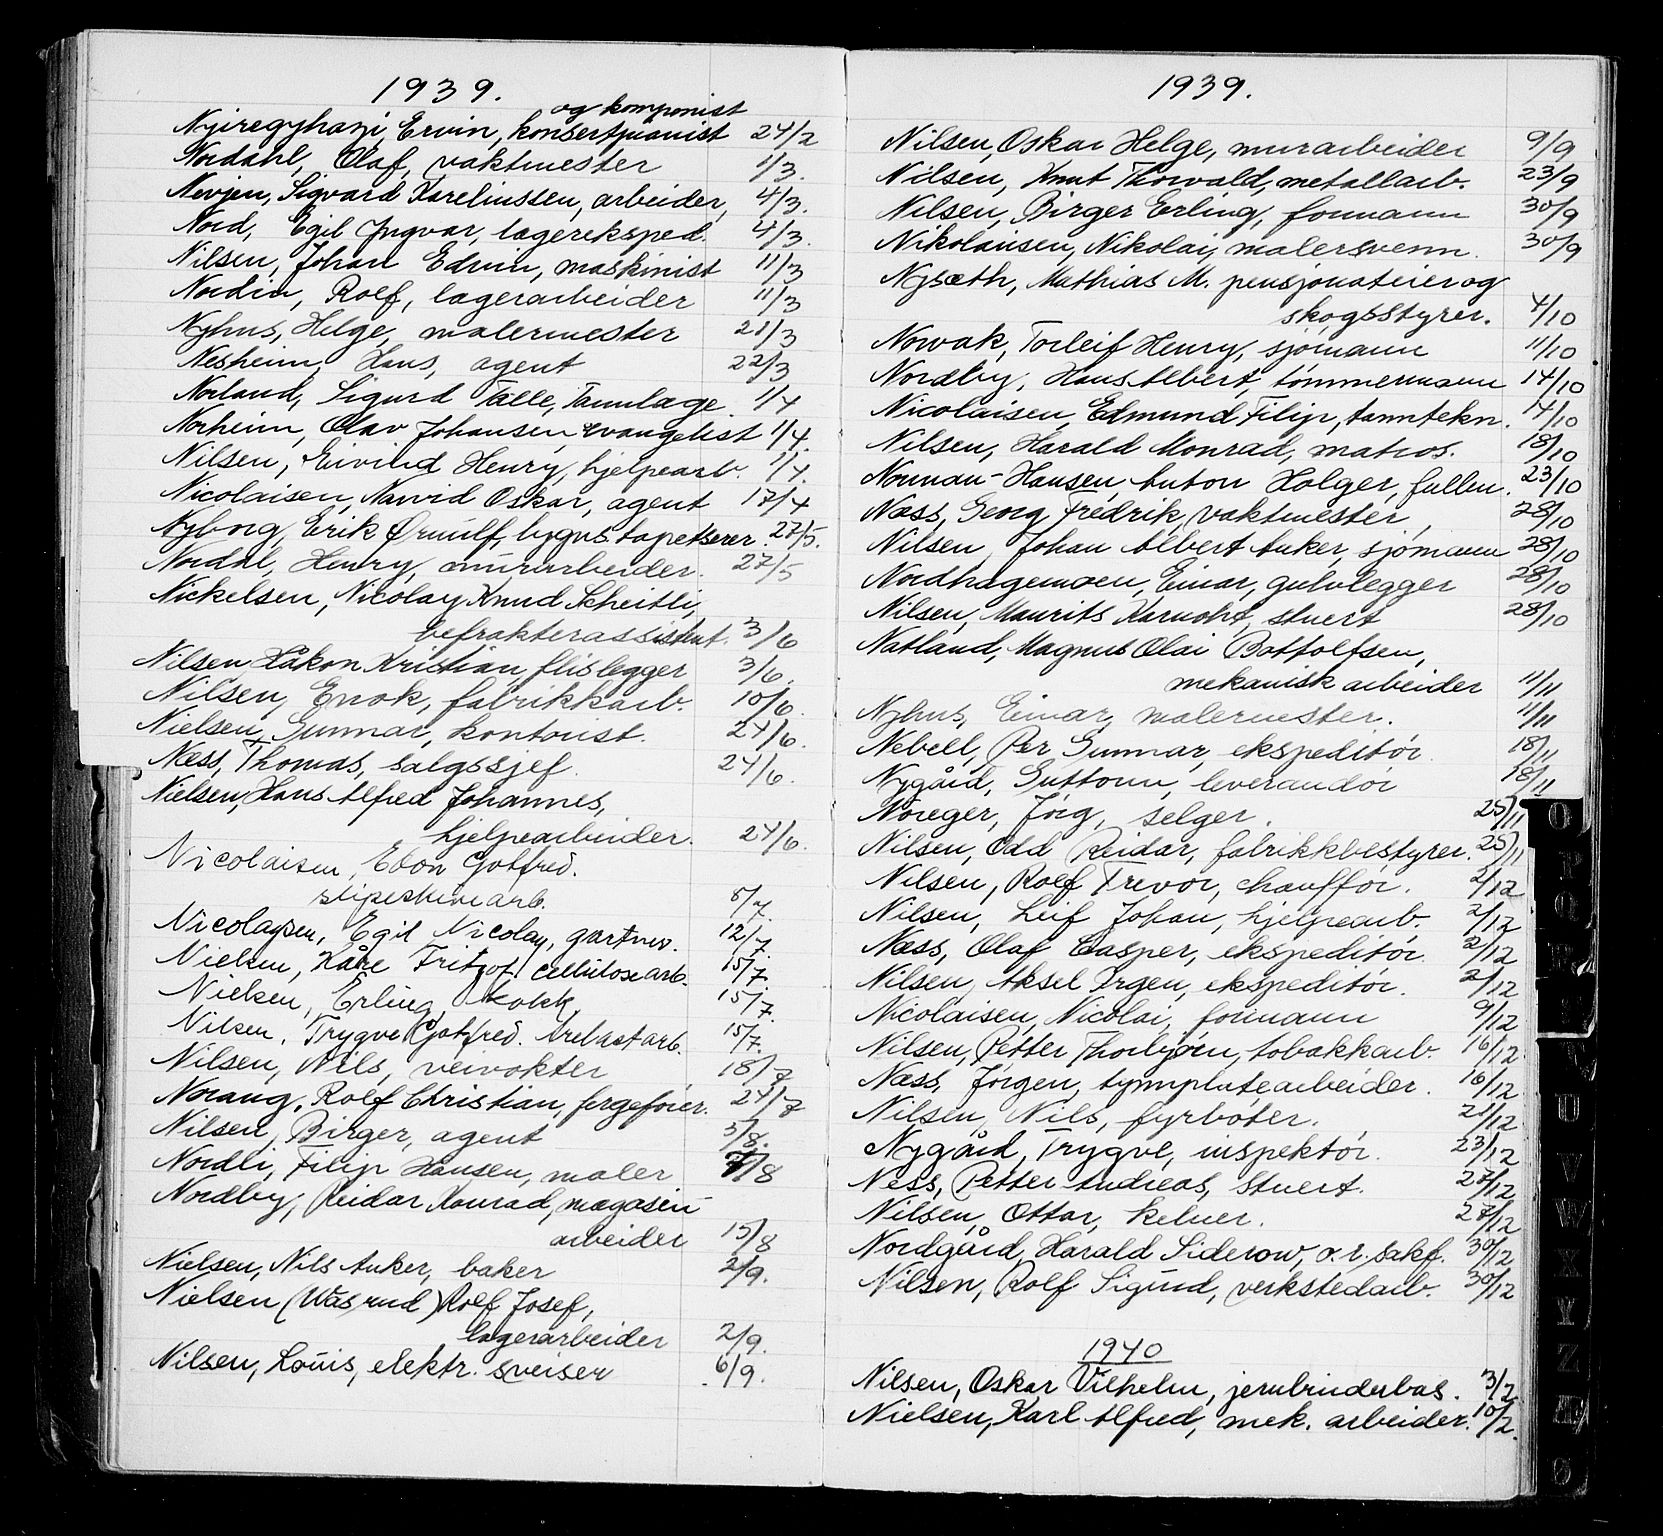 1939.
og komponist
Nyiregyhazi, Ervin, konsertpianist 24/2
Nordahl, Olaf, vaktmester 1/3.
Nevjen, Sigvard Karelinssen, arbeider, 4/3.
Nord, Egil Yngvar, lagereksped. 4/3.
Nilsen, Johan Edvin, maskinist 11/3
Nordin, Rolf, lagerarbeider 11/3
Nyhus, Helge, malermester 21/3
Nesheim, Hans, agent 22/3
Norland, Sigurd Tälle, Tannlæge. 1/4
Norheim, Olav Johansen, evangelist 1/4.
Nilsen, Eivind Henry, hjelpearb. 1/4.
Nicolaisen, Narvid Oskar, agent 17/4
Nyborg, Erik Ørnulf, bygns.tapetserer. 27/5.
Nordal, Henry, murarbeider. 27/5
Nickelsen, Nicolay Knud Scheitli,
befrakterassistent. 3/6
Nilsen Håkon Kristian, flislegger 3/6.
Nilsen, Enok, fabrikkarb. 10/6.
Nielsen, Gunnar, kontorist. 24/6.
Næss, Thomas, salgssjef. 24/6.
Nielsen, Hans Alfred Johannes,
hjelpearbeider. 24/6.
Nicolaisen, Ebon Gotfred.
slipestenarb. 5/7.
Nicolaysen, Egil Nicolay, gartner. 12/7.
Nielsen, Kåre Fritjof, cellulosearb. 15/7.
Nielsen, Erling, kokk, 15/7.
Nilsen, Trygve Gotfred. trelastarb. 15/7.
Nilsen, Nils, veivokter 18/7
Norang, Rolf Christian, fergefører. 24/7
Nilsen, Birger, agent 5/8.
Nordli, Filip Hansen, maler 7/8
Nordby, Reidar Konrad, magasin-
arbeider 15/8
Nielsen, Nils Anker, baker 2/9.
Nielsen (Wasrud) Rolf Josef,
lagerarbeider 2/9.
Nilsen, Louis, elektr. sveiser 6/9.
1939.
Nilsen, Oskar Helge, murarbeider 9/9
Nilsen, Knut Thorvald, metallarb. 23/9
Nilsen, Birger Erling, formann 30/9
Nikolaisen, Nikolai, malersvenn. 30/9
Nysæth, Mathias M. pensjonateier og
skogsstyrer. 4/10
Nowak, Torleif Henry, sjømann 11/10
Nordby, Hans Albert, tømmermann 14/10
Nicolaisen, Edmund Filip, tanntekn. 14/10
Nilsen, Harald Monrad, matros. 18/10
Norman-Hansen, Anton Holger, fullm. 23/10
Næss, Georg Fredrik, vaktmester, 28/10
Nilsen, Johan Albert Anker, sjømann 28/10
Nordhagemoen, Einar, gulvlegger 28/10
Nilsen, Maurits Karnohf, stuert 28/10
Natland, Magnus Olai Bottolfsen,
mekanisk arbeider 11/11
Nyhus, Einar, malermester. 11/11
Nebell, Per Gunnar, ekspeditør. 18/11
Nygård, Guttorm, leverandør 18/11
Noreger, Jörg, selger. 25/11
Nilsen, Odd Reidar, fabrikkbestyrer. 25/11
Nilsen, Rolf Trevor, chauffør. 2/12
Nilsen, Leif Johan, hjelpearb. 2/12
Næss, Olaf Casper, ekspeditør. 2/12
Nilsen, Aksel Ørgen, ekspeditør. 2/12
Nicolaisen, Nicolai, formann 9/12
Nilsen, Petter Thorbjørn, tobakkarb. 16/12
Næss, Jørgen, tynnplatearbeider. 16/12
Nilsen, Nils, fyrbøter. 21/12
Nygård, Trygve, inspektør. 23/12
Ness, Petter Andreas, stuert. 27/12
Nilsen, Ottar, kelner. 27/12
Nordgård, Harald Siderow, o.r.sakf. 30/12
Nilsen, Rolf Sigurd, verkstedarb. 30/12
1940
Nilsen, Oskar Vilhelm, jernbinderbas. 3/2
Nielsen, Karl Alfred, mek. arbeider. 10/2.
O
P
Q
R
S
T
U
V
W
X
Y
Z
Æ
Ø